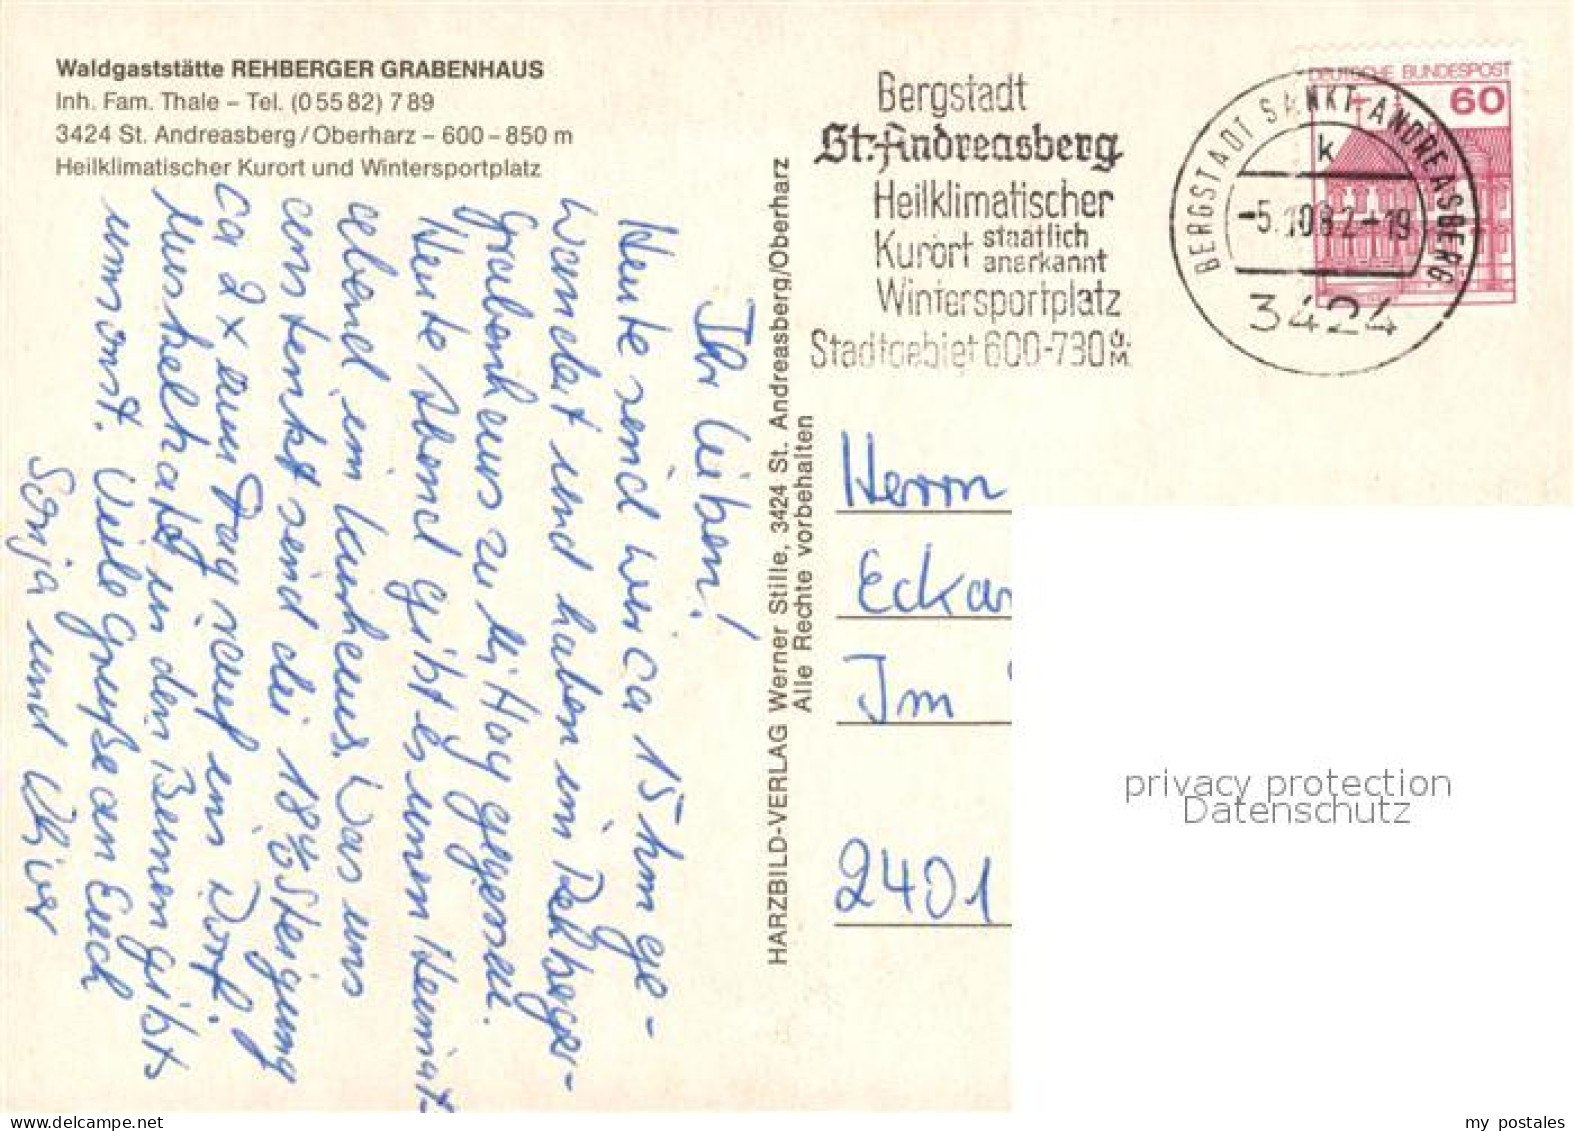 Waldgaststätte REHBERGER GRABENHAUS
Inh. Fam. Thale – Tel. (0 55 82) 7 89
3424 St. Andreasberg / Oberharz – 600 – 850 m
Heilklimatischer Kurort und Wintersportplatz
Ihr lieben!
Heute sind wir ca 15 km ge-
wandert und haben im Rehberger-
Grabenhaus zu Mittag gegessen.
Heute Abend gibt es einen Heimat-
abend im Kurhaus. Was uns
ans tenkt sind die 18% Steigung
ca 2x am Tag rauf ins Dorf.
Muskelkater in den Beinen gibts
umsonst. Viele Grüße an Euch
Sonja und Oliver
HARZBILD-VERLAG Werner Stille, 3424 St. Andreasberg/Oberharz
Alle Rechte vorbehalten
Bergstadt
St. Andreasberg
Heilklimatischer
Kurort staatlich anerkannt
Wintersportplatz
Stadtgebiet 600-730 ü.M.
DEUTSCHE BUNDESPOST
60
BERGSTADT SANKT ANDREASBERG
k
-5.10.82-19
3424
Herrn
Eckar
Im
2401
privacy protection
Datenschutz
www.ansichtskartenversand.com
my postales